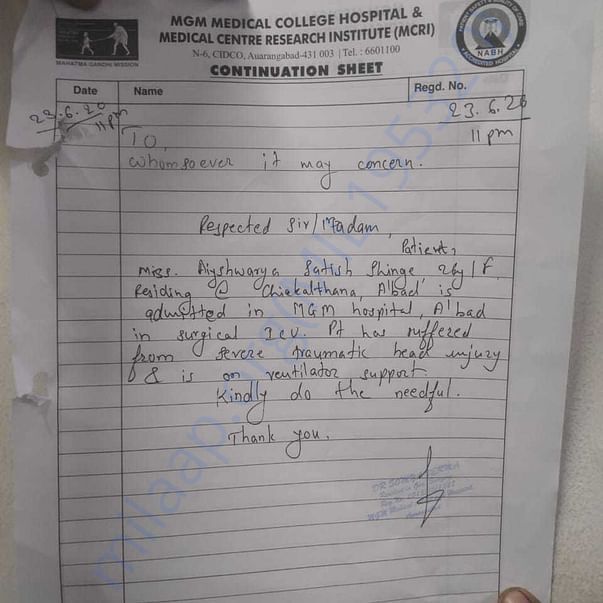 MGM MEDICAL COLLEGE HOSPITAL &
MEDICAL CENTRE RESEARCH INSTITUTE (MCRI)
N-6, CIDCO, Auarangabad-431 003 | Tel. : 6601100
CONTINUATION SHEET
MAHATMA GANDHI MISSION
NABH
ACCREDITED HOSPITAL
Date Name Regd. No.
23.6.20 23.6.20
11 pm 11 pm
To,
whomsoever it may concern.
Respected Sir/Madam,
Patient,
Miss. Aiyshwarya Satish Shinge 26y/F.
Residing @ Chikalthana, A'bad is
admitted in MGM hospital, A'bad
in surgical ICU. Pt has suffered
from severe traumatic head injury
& is on ventilator support.
Kindly do the needful.
Thank you.